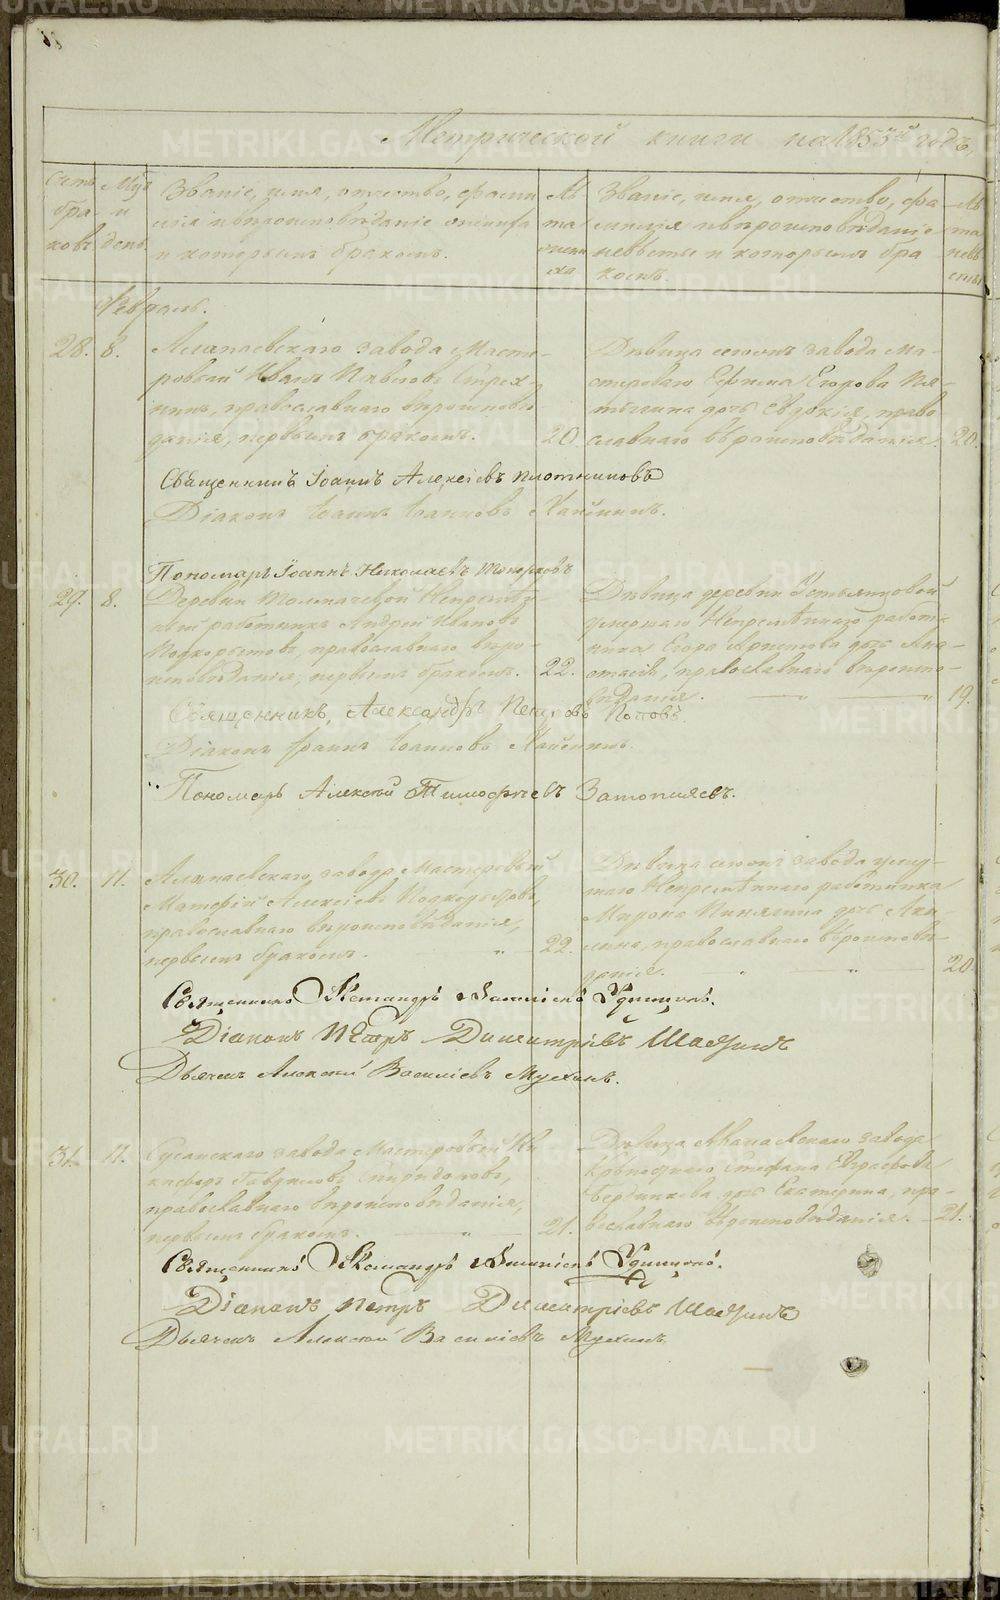 Метрической книги на 1853й годъ,
Счетъ браковъ
Мѣс. и день
Званіе, имя, отчество, фами
лія и вѣроисповѣданіе жениха
и которымъ бракомъ.
Лѣта жениха
Званіе, имя, отчество, фа
милія и вѣроисповѣданіе
невѣсты и которымъ бра
комъ.
Лѣта невѣсты
Февраль.
28. 8. Алапаевскаго завода Масте-
ровый Иванъ Павловъ
православнаго вѣроиспове
данія, первымъ бракомъ. 20.
Дѣвица сегожъ завода Ма-
стероваго Ефима Егорова
дочь Евдокія, право
славнаго вѣроисповѣданія. 20.
Священникъ Іоаннъ Алексіевъ Плотниковъ
Діаконъ Іоаннъ Іоанновъ
Пономарь Іоаннъ Николаевъ Топорковъ
29. 8. Деревни Толмачевой Непремѣн-
ный работникъ Андрей Ивановъ
Подкорытовъ, православнаго вѣро-
исповѣданія, первымъ бракомъ. 22.
Дѣвица деревни Устьянчовой
умершаго Непремѣннаго работ
ника Егора дочь Ана-
стасія, православнаго вѣроиспо-
вѣданія. 19.
Священникъ, Александръ Петровъ Поповъ.
Діаконъ Іоаннъ Іоанновъ
Пономарь Алексѣй Тимофеевъ Затопляевъ.
30. 11. Алапаевскаго завода Мастеровый
Матфей Алексіевъ Подкорытовъ,
православнаго вѣроисповѣданія,
первымъ бракомъ. 22.
Дѣвица сегожъ завода умер-
шаго Непремѣннаго работника
Мирона дочь Аку-
лина, православнаго вѣроисповѣ-
данія. 20.
Священникъ Александръ Удинцовъ.
Діаконъ Петръ Димитріевъ
Дьячекъ Алексѣй Василіевъ Мухинъ.
31. 11. Сусанскаго завода Мастеровый Ни
кифоръ Гавриловъ Спиридоновъ,
православнаго вѣроисповѣданія,
первымъ бракомъ. 21.
Дѣвица Алапаевскаго завода
Стефана Евграфова
Бердникова дочь Екатерина, пра-
вославнаго вѣроисповѣданія. 21.
Священникъ Александръ Удинцовъ.
Діаконъ Петръ Димитріевъ
Дьячекъ Алексѣй Василіевъ Мухинъ.
METRIKI.GASO-URAL.RU